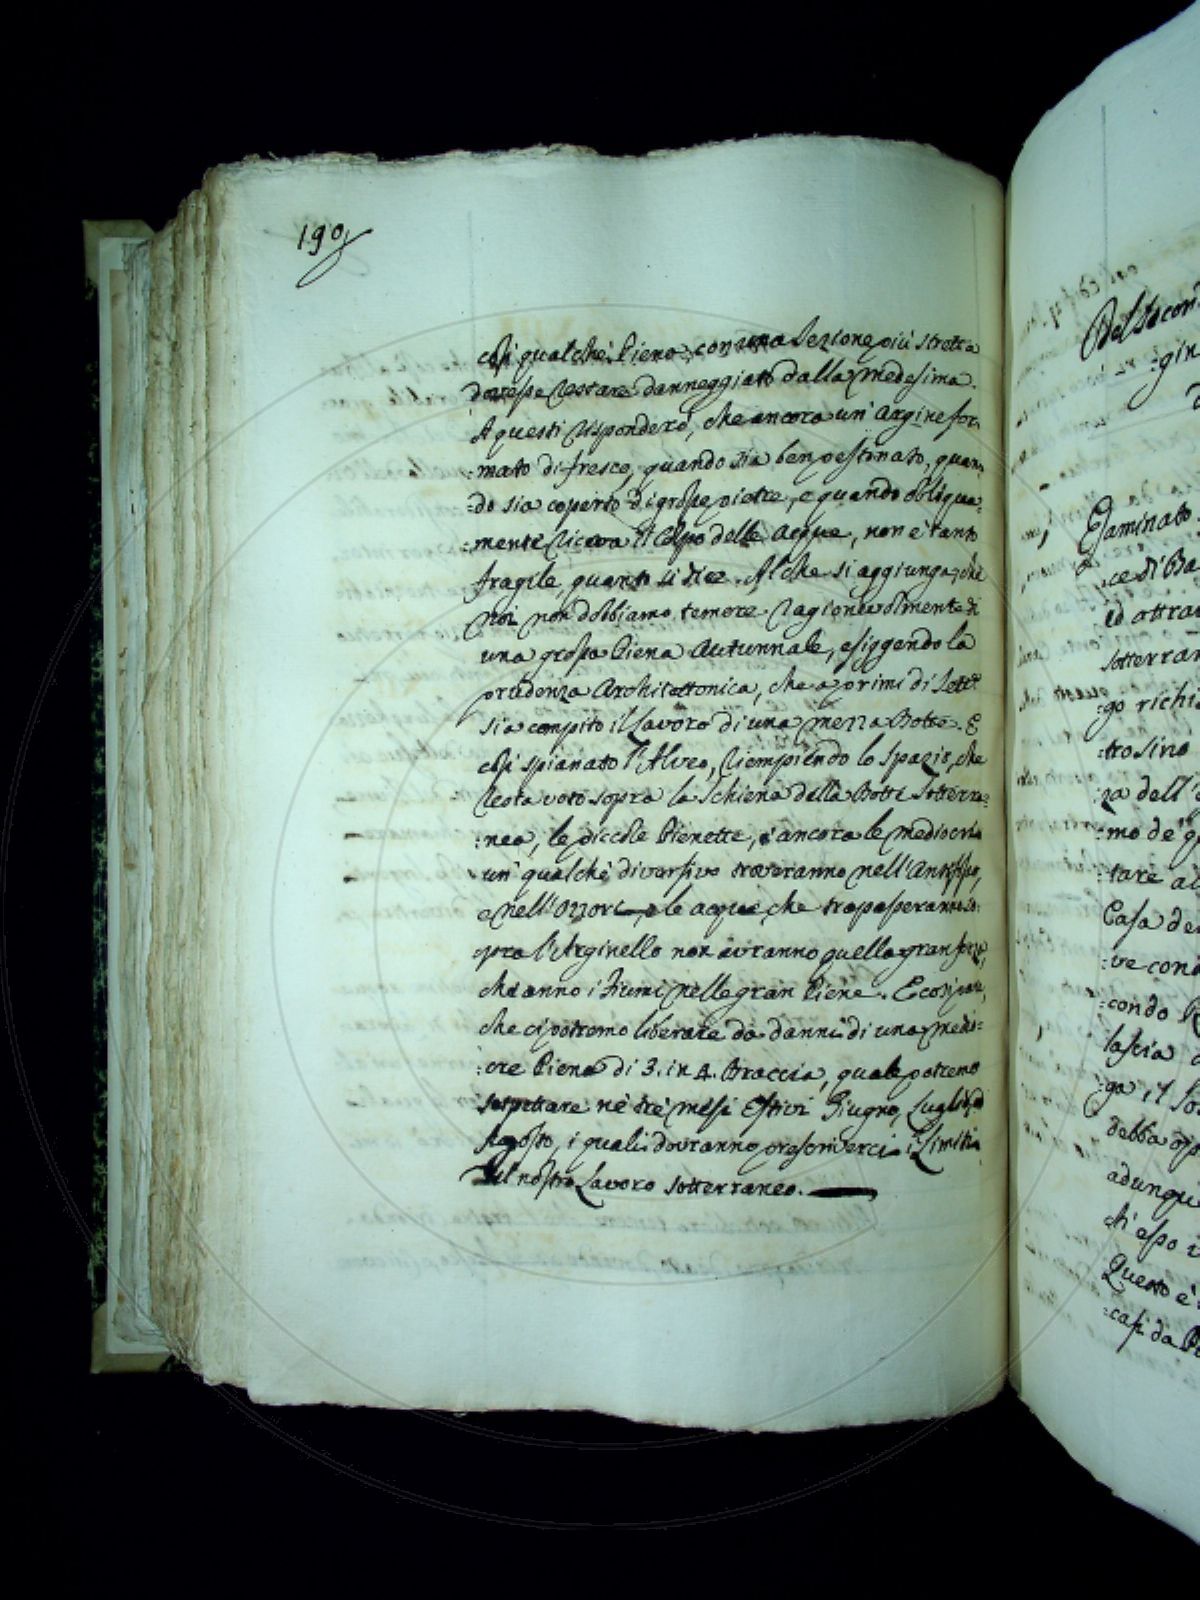 190
così qualche Piena con una Sezione più stretta
dovesse restare danneggiato dalla medesima.
A questi risponderò, che ancora un' Argine for-
:mato di fresco, quando sia ben pestinato, quan-
:do sia coperto di grosse pietre, e quando obliqua=
:mente riceva il Colpo delle Acque, non è tanto
fragile, quanto si dice. Al che si aggiunga, che
Noi non dobbiamo temere ragionevolmente di
una grossa Piena Autunnale, esiggendo la
prudenza Architettonica, che a primi di Sett.e
sia compito il Lavoro di una mezza Botte. E
così spianato l'Alveo, riempiendo lo spazio, che
resta voto sopra la Schiena della Botte Sotterra=
:nea, le piccole Pienette, e ancora le mediocri
un qualche diversivo troveranno nell'Antifosso,
e nell'Ozzori, e le acque, che trapasseranno so-
pra l'Arginello non avranno quella gran forza,
che anno i Fiumi nelle gran Piene. E così pare,
che ci potremo liberare da danni di una medio=
:cre Piena di 3. in 4. Braccia, quale potremo
sospettare ne trè mesi Estivi Giugno, Luglio, e
Agosto, i quali dovranno prescriverci i Limiti
del nostro Lavoro Sotterraneo.
Del Secon
:gin
Esaminato
:ce di Ba
ed ottra
sotterran
:go richi
:trosino
za dell'
:mo de' q
:tare al
Casa de
:ve cond
:condo
lascia
:ga, 
debba op
adunque
di esso
Questo è
:casi da